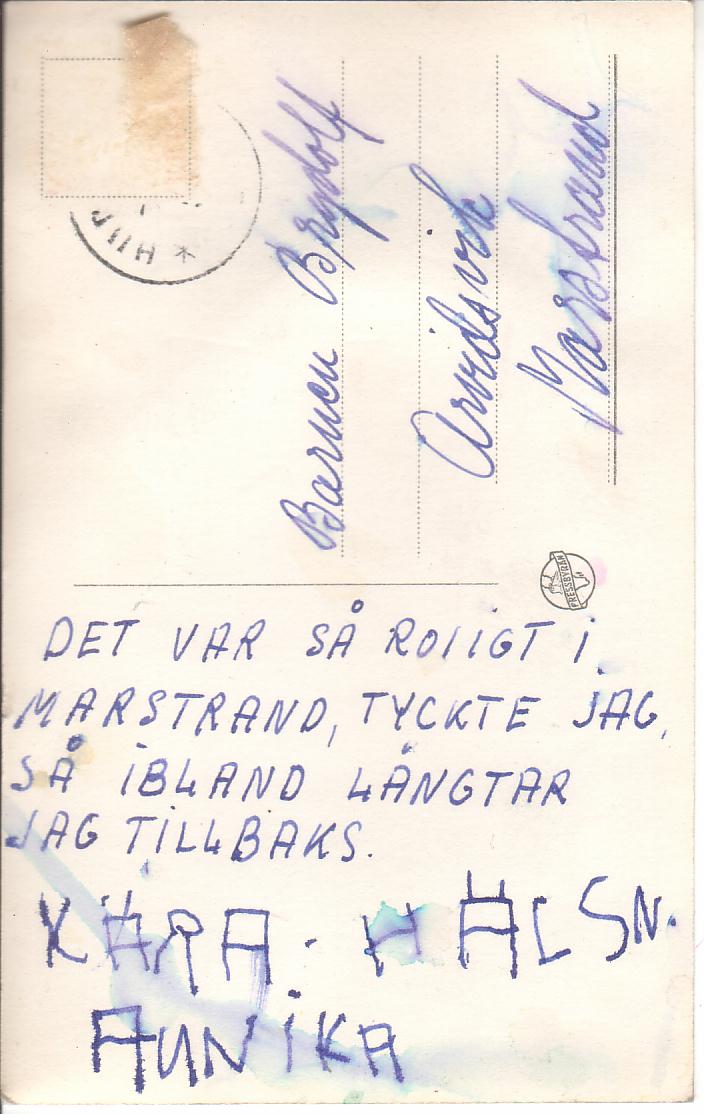 Barnen Brydolf
Arvidsvik
Marstrand
PRESSBYRÅN
DET VAR SÅ ROLIGT I
MARSTRAND, TYCKTE JAG,
SÅ IBLAND LÄNGTAR
JAG TILLBAKS.
KÄRA. HÄLSN.
ANNIKA